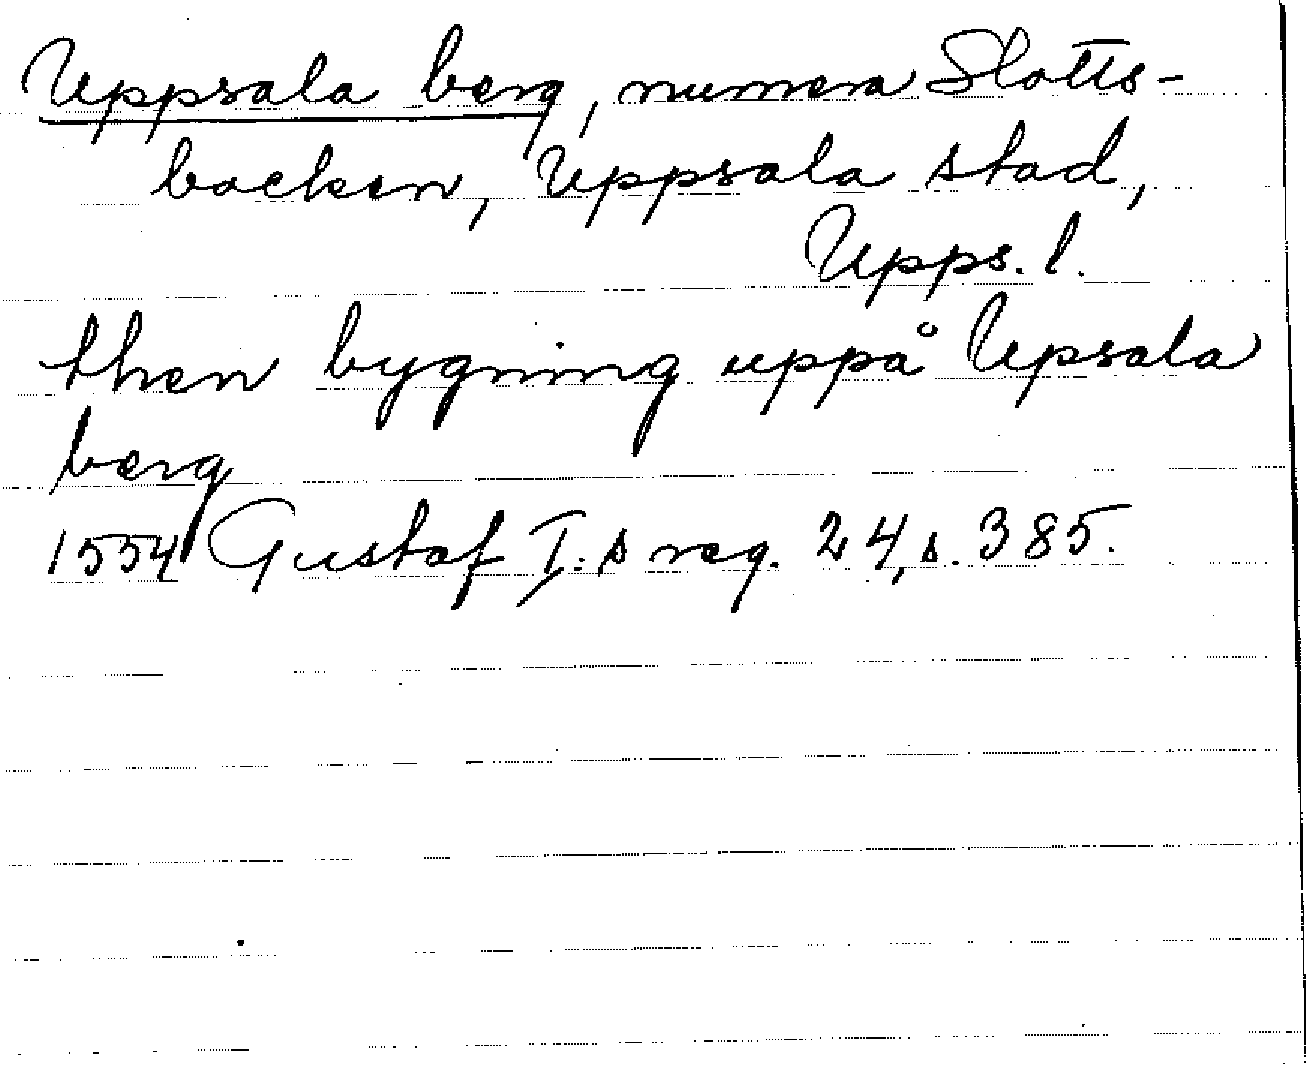 Uppsala berg, numera Slotts-
backen, Uppsala stad,
Upps. l.
then bygning uppå Upsala
berg
1554 Gustaf I:s reg. 24, s. 385.